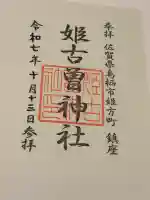 奉拝 佐賀県鳥栖市姫方町 鎮座
姫古曽神社
令和七年十月十三日参拝